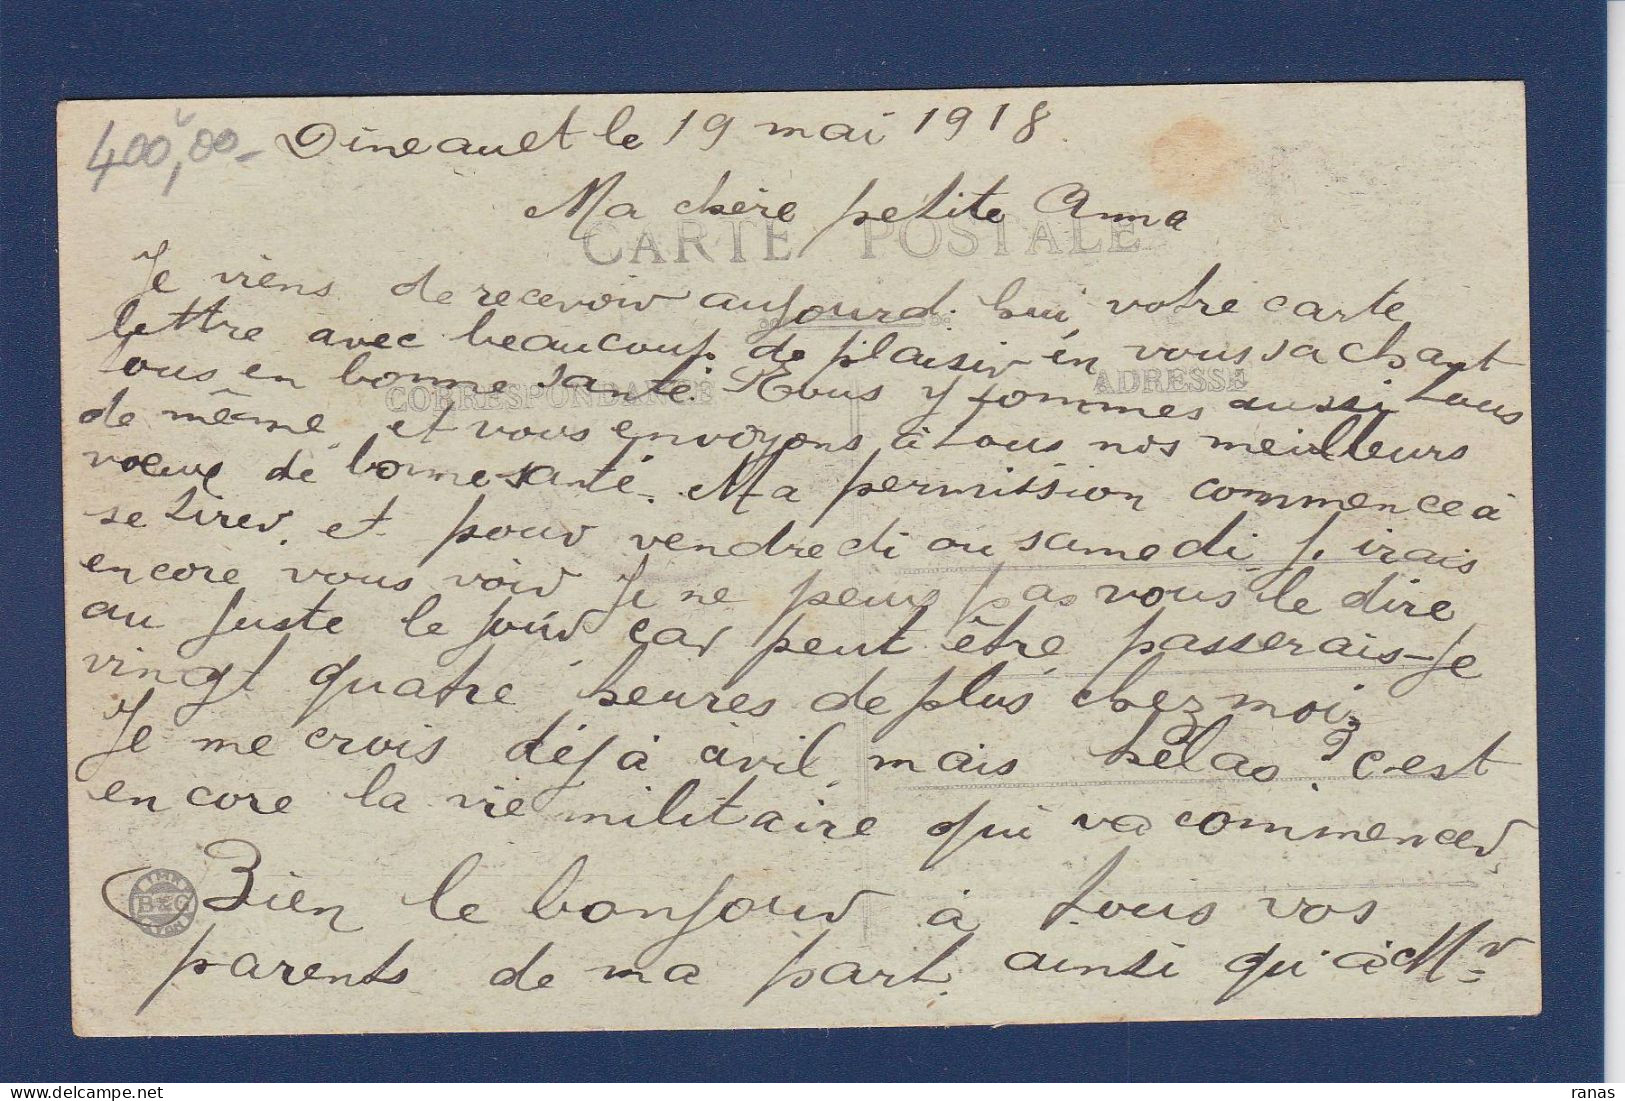 400,00
Dineault le 19 mai 1918.
Ma chère petite Anna
CARTE POSTALE
Je viens de recevoir aujourd'hui votre carte
lettre avec beaucoup de plaisir en vous sachant
tous en bonne santé. Nous y sommes aussi tous
CORRESPONDANCE
ADRESSE
de même, et vous envoyons à tous nos meilleurs
voeux de bonne santé. Ma permission commence à
se tirer, et pour vendredi ou samedi j'irais
encore vous voir Je ne peux pas vous le dire
au juste le jour, car peut être passerais-Je
vingt quatre heures de plus chez moi,
Je me crois déjà civil, mais hélas ? c'est
encore la vie militaire qui va commencer,
Bien le bonjour à tous vos
parents de ma part, ainsi qu'à Mr
B&G
ranas